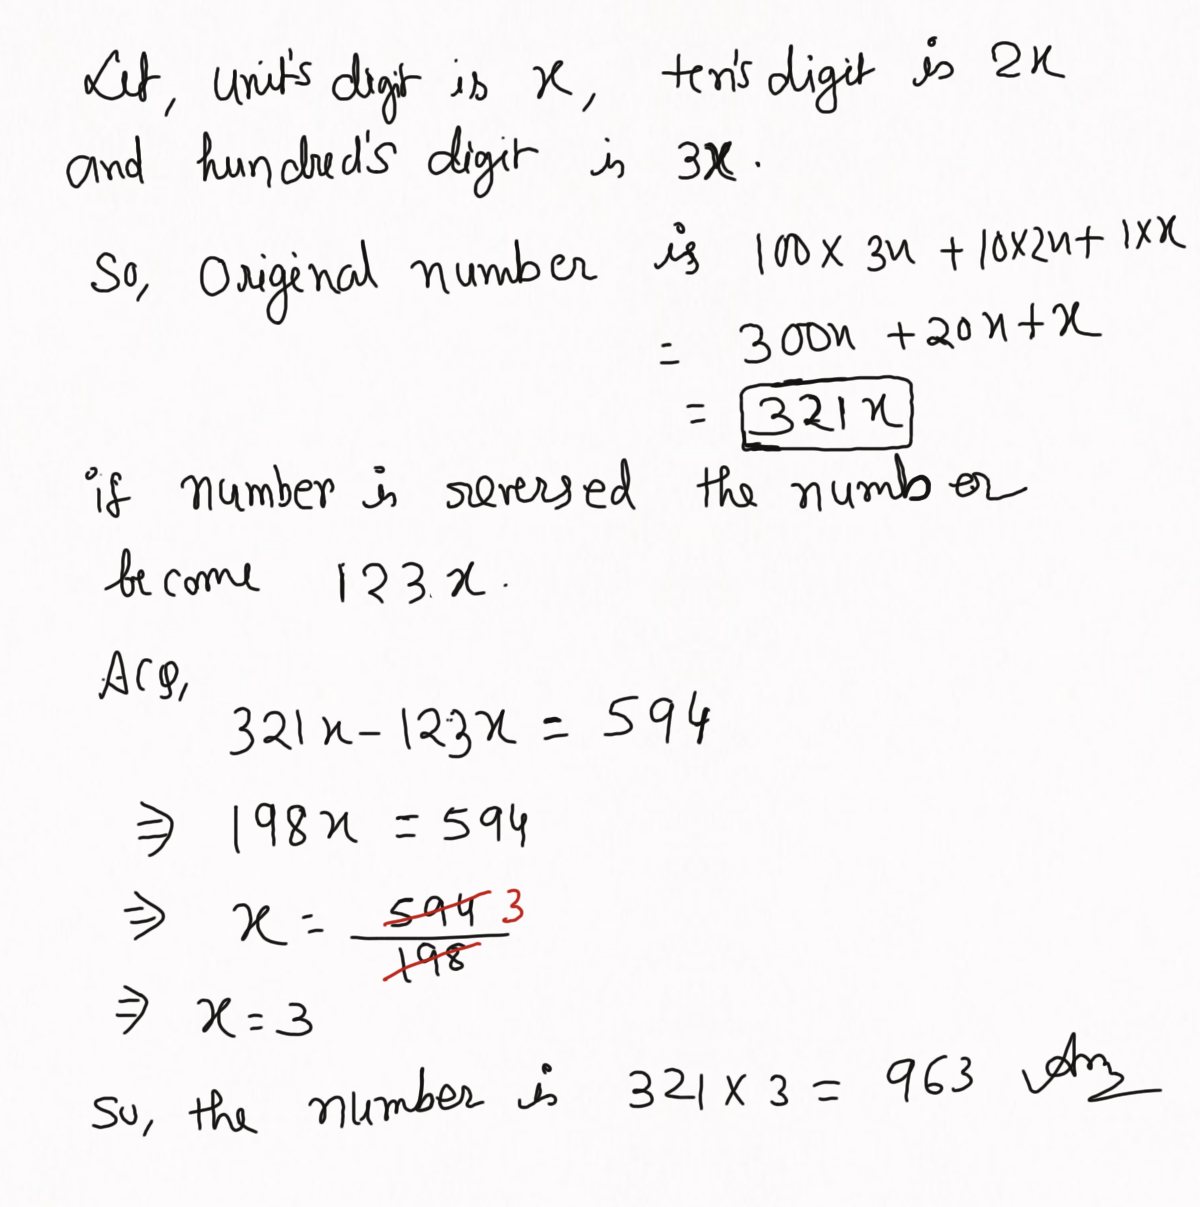 Let, unit's digit is x, ten's digit is 2x
and hundred's digit is 3x.
So, Original number is 100 × 3x + 10×2x + 1×x
= 300x + 20x + x
= 321x
if number is reversed the number
become 123x.
ACQ,
321x - 123x = 594
⇒ 198x = 594
⇒ x = 594/198 3
⇒ x = 3
So, the number is 321 × 3 = 963 Ans